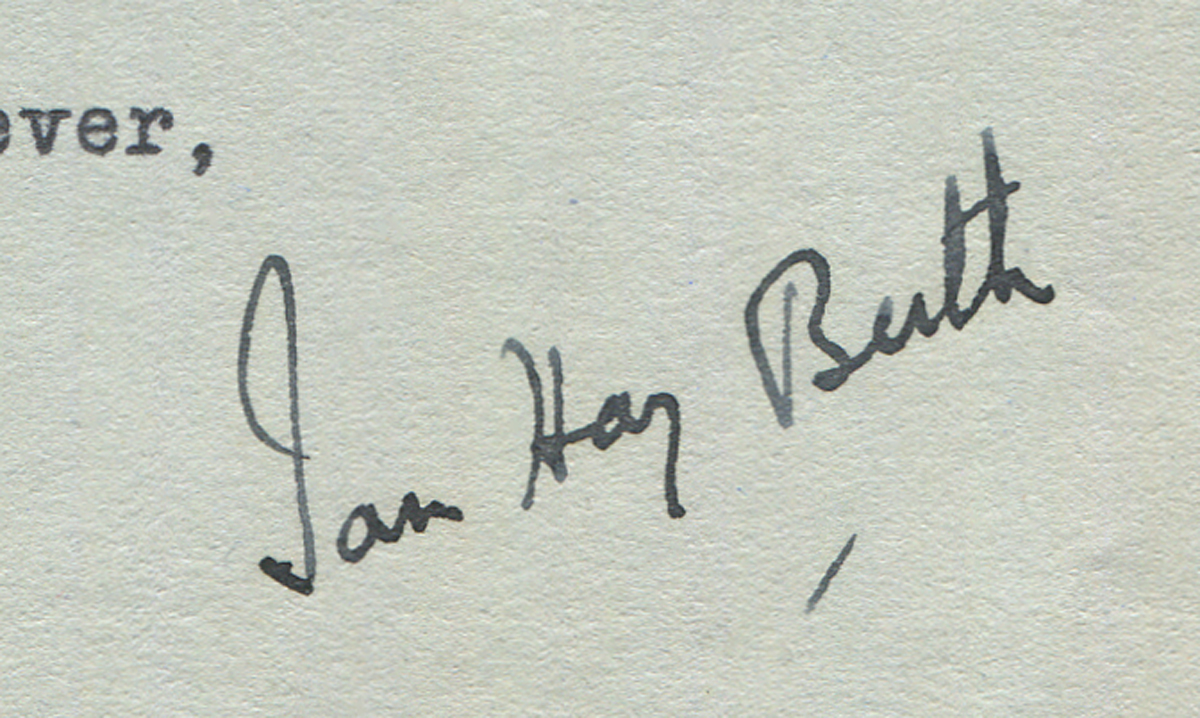 ever,
Ian Hay Beith